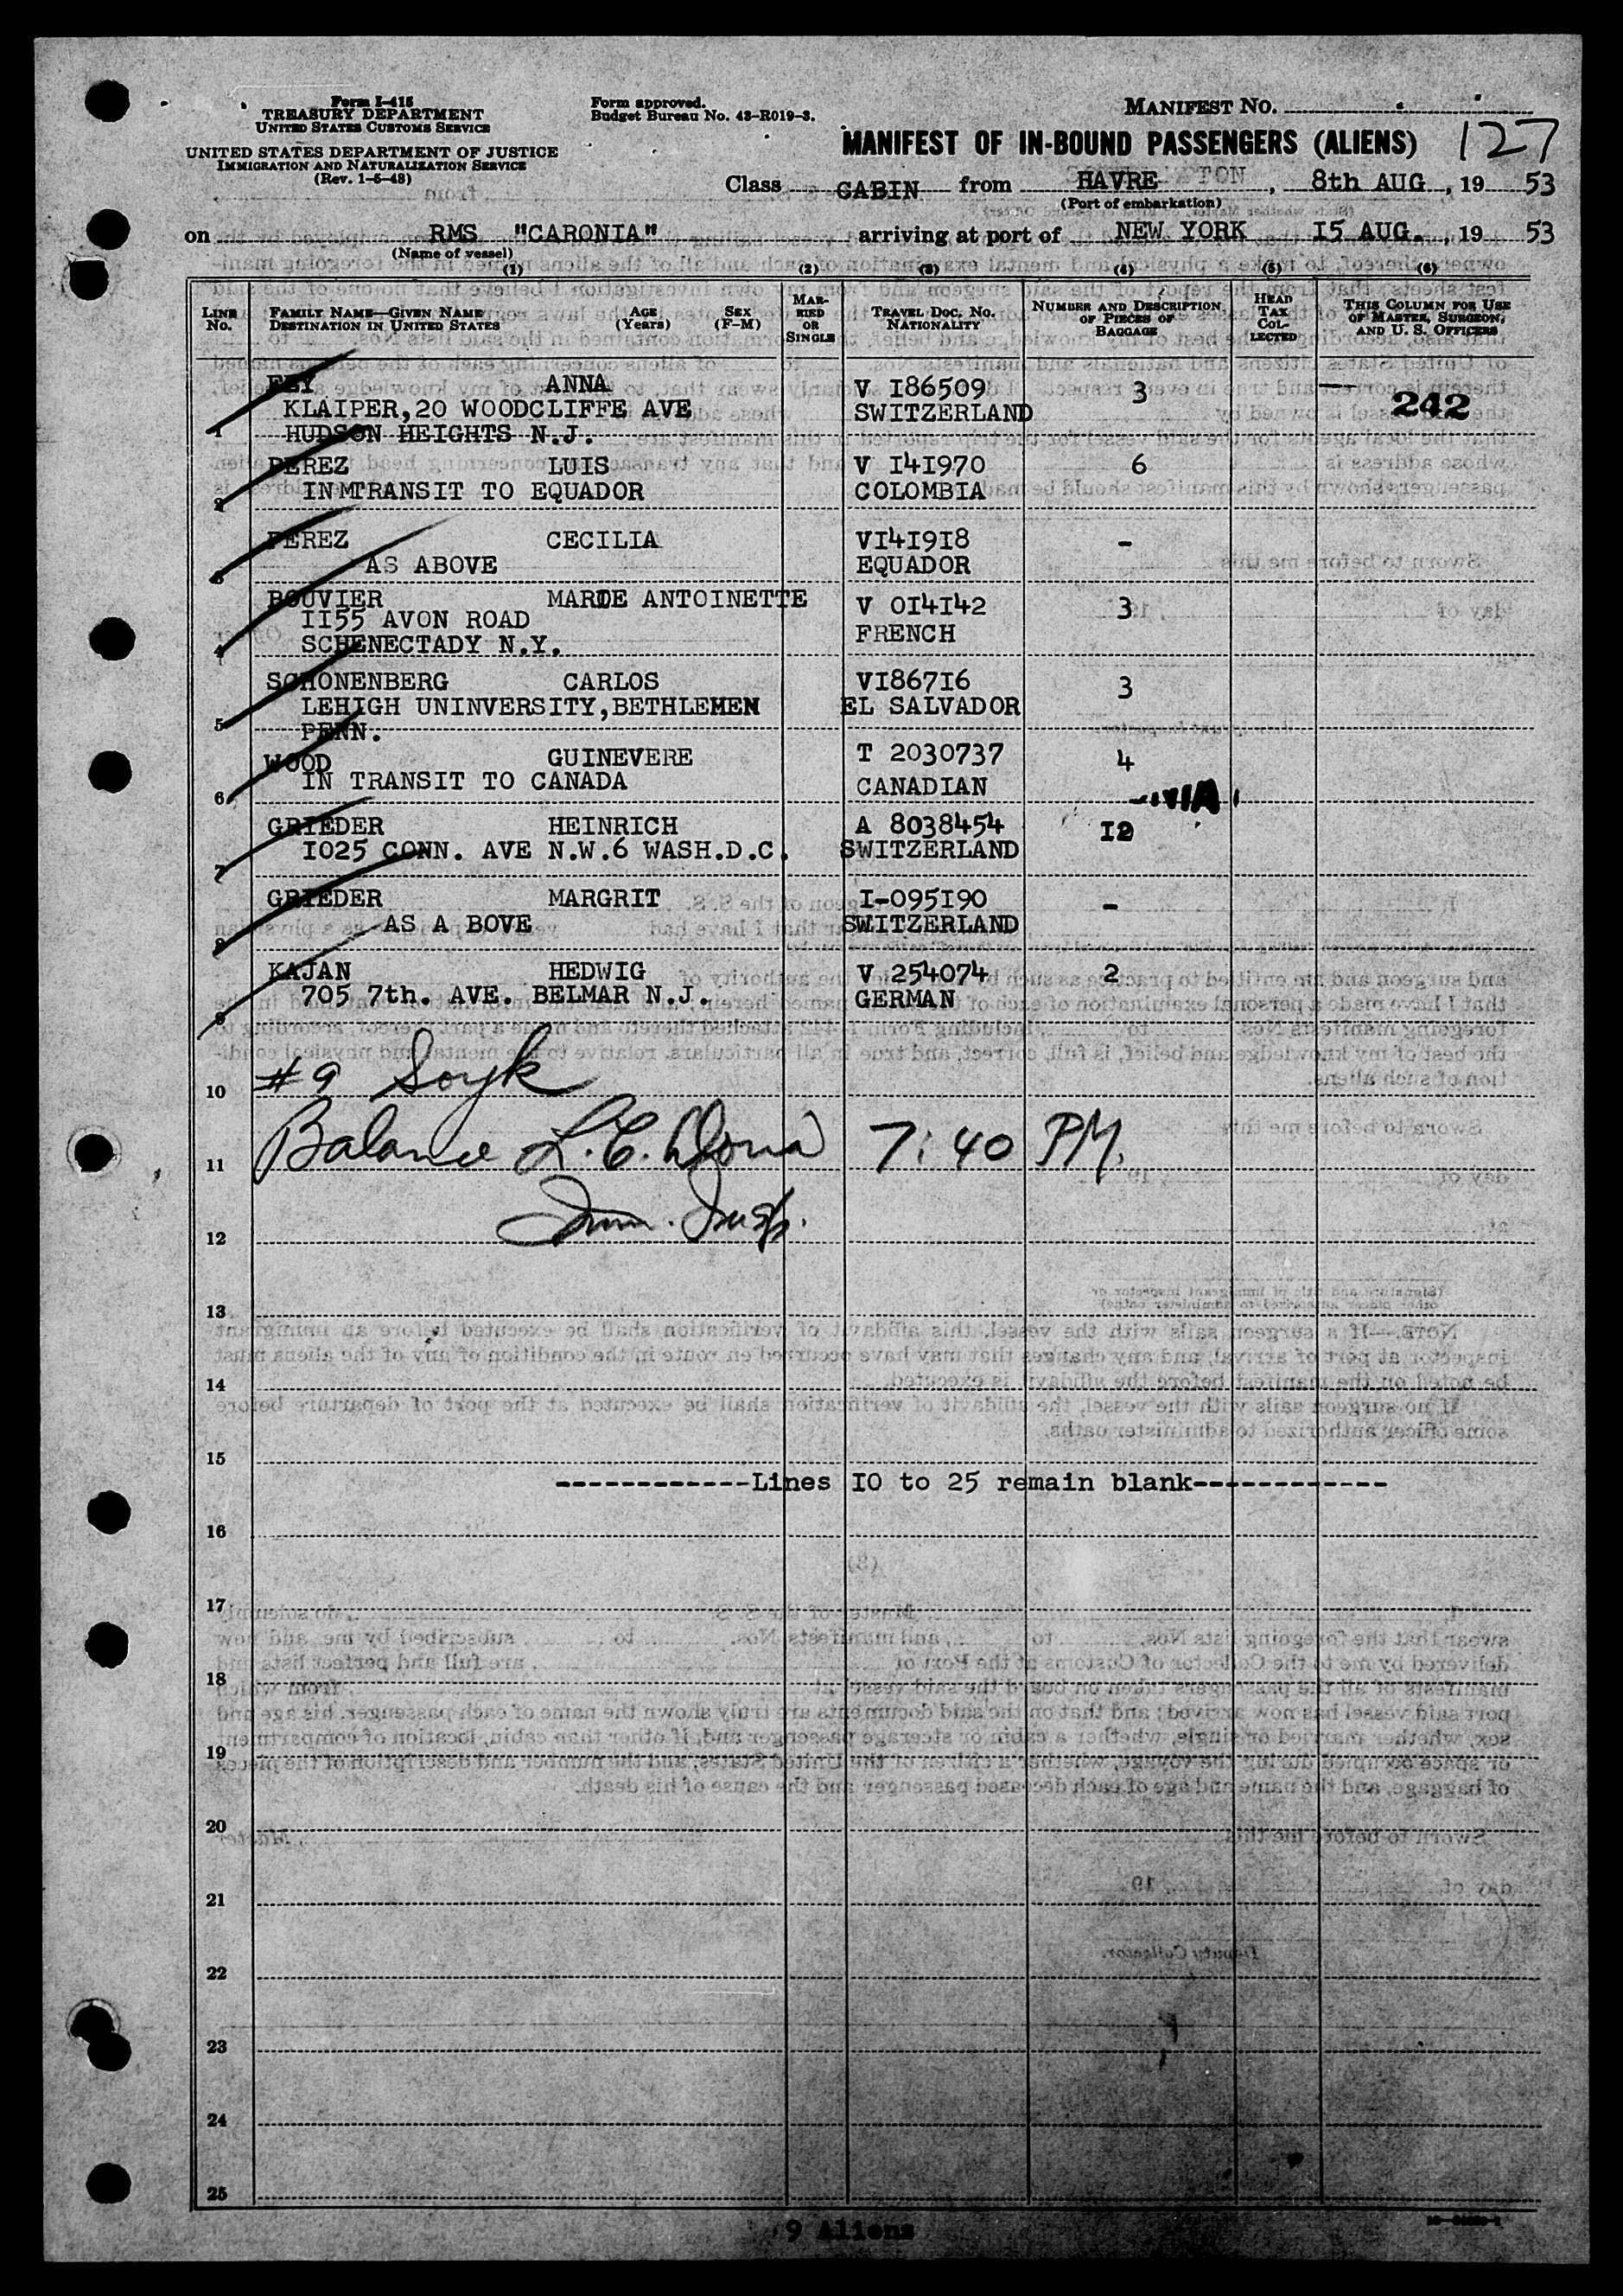 Form I-415
TREASURY DEPARTMENT
UNITED STATES CUSTOMS SERVICE
UNITED STATES DEPARTMENT OF JUSTICE
IMMIGRATION AND NATURALIZATION SERVICE
(Rev. 1-5-48)
Form approved.
Budget Bureau No. 43-R019-3.
MANIFEST NO.
MANIFEST OF IN-BOUND PASSENGERS (ALIENS) 127
Class CABIN from HAVRE, 8th AUG, 19 53
(Port of embarkation)
on RMS "CARONIA" arriving at port of NEW YORK I5 AUG., 19 53
(Name of vessel)
(1) (2) (3) (4) (5) (6)
LINE No. FAMILY NAME—GIVEN NAME DESTINATION IN UNITED STATES AGE (Years) SEX (F-M) MARRIED OR SINGLE TRAVEL DOC. NO. NATIONALITY NUMBER AND DESCRIPTION OF PIECES OF BAGGAGE HEAD TAX COLLECTED THIS COLUMN FOR USE OF MASTER, SURGEON, AND U. S. OFFICERS
ANNA V I86509 3 —
KLAIPER,20 WOODCLIFFE AVE SWITZERLAND 242
1 HUDSON HEIGHTS N.J.
PEREZ LUIS V I4I970 6
2 INMTRANSIT TO EQUADOR COLOMBIA
PEREZ CECILIA VI4I9I8 -
3 AS ABOVE EQUADOR
BOUVIER MARIE ANTOINETTE V 0I4I42 3
II55 AVON ROAD
4 SCHENECTADY N.Y. FRENCH
SCHONENBERG CARLOS VI867I6 3
LEHIGH UNINVERSITY,BETHLEMEN EL SALVADOR
5 PENN.
WOOD GUINEVERE T 2030737 4
6 IN TRANSIT TO CANADA CANADIAN
GRIEDER HEINRICH A 8038454 I2
7 I025 CONN. AVE N.W.6 WASH.D.C. SWITZERLAND
GRIEDER MARGRIT I-095I90 -
8 AS A BOVE SWITZERLAND
KAJAN HEDWIG V 254074 2
9 705 7th. AVE. BELMAR N.J. GERMAN
10 #9
11 Balance 7:40 PM.
12 Imm. Insp.
13
14
15
------------Lines IO to 25 remain blank------------
16
17
18
19
20
21
22
23
24
25
9 Aliens